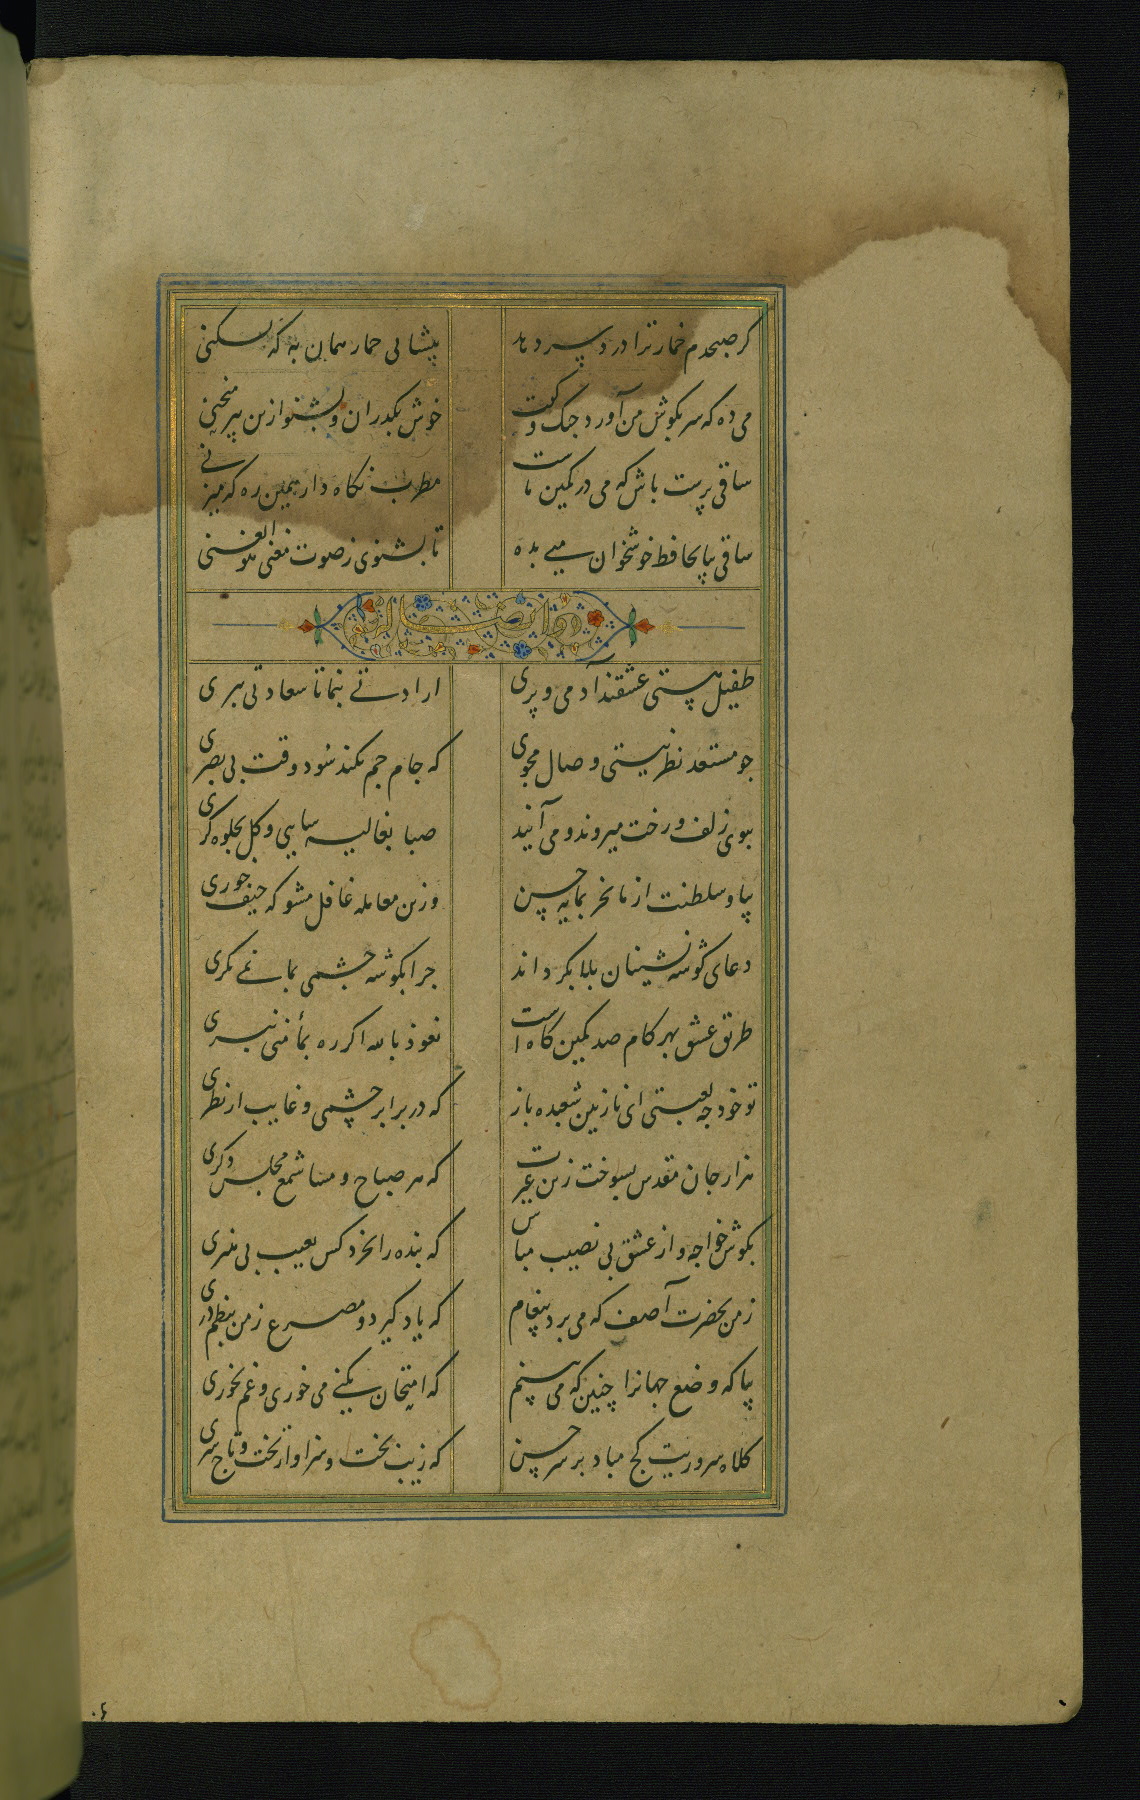 کر صبحدم خمار ترا درد سر دهد
پیشانی خمار همان به که بشکنی
می ده که سر بکوش من آورد چنک و کفت
خوش بکذران و بشنو ازین پیر منحنی
ساقی پرست باش که می در کمین ماست
مطرب نکاه دار همین ره که میزنی
ساقی بیا بحافظ خوشخوان می بده
تا بشنوی ز صوت مغنی هو الغنی
طفیل هستی عشقند آدمی و پری
ارادتی بنما تا سعادتی ببری
چو مستعد نظر نیستی وصال مجوی
که جام جم نکند سود وقت بی بصری
ببوی زلف و رخت میروند و می آیند
صبا بغالیه سایی و کل بجلوه کری
بیا و سلطنت از ما بخر بمایه حسن
وزین معامله غافل مشو که حیف خوری
دعای کوشه نشینان بلا بکرداند
چرا بکوشه چشمی بما نمی نکری
طریق عشق بهر کام صد کمین کاه است
نعوذ بالله اکر ره بمأمنی نبری
تو خود چه لعبتی ای نازنین شعبده باز
که در برابر چشمی و غایب از نظری
هزار جان مقدس بسوخت زین غیرت
که هر صباح و مسا شمع مجلس دکری
بکوش خواجه و از عشق بی نصیب مباش
که بنده را نخرد کس بعیب بی هنری
ز من بحضرت آصف که می برد پیغام
که یاد کیر دو مصرع ز من بنظم دری
بیا که وضع جهانرا چنین که می بینم
که امتحان بکنی می خوری و غم نخوری
کلاه سروریت کج مباد بر سر حسن
که زیب بخت و سزاوار تخت و تاج سری